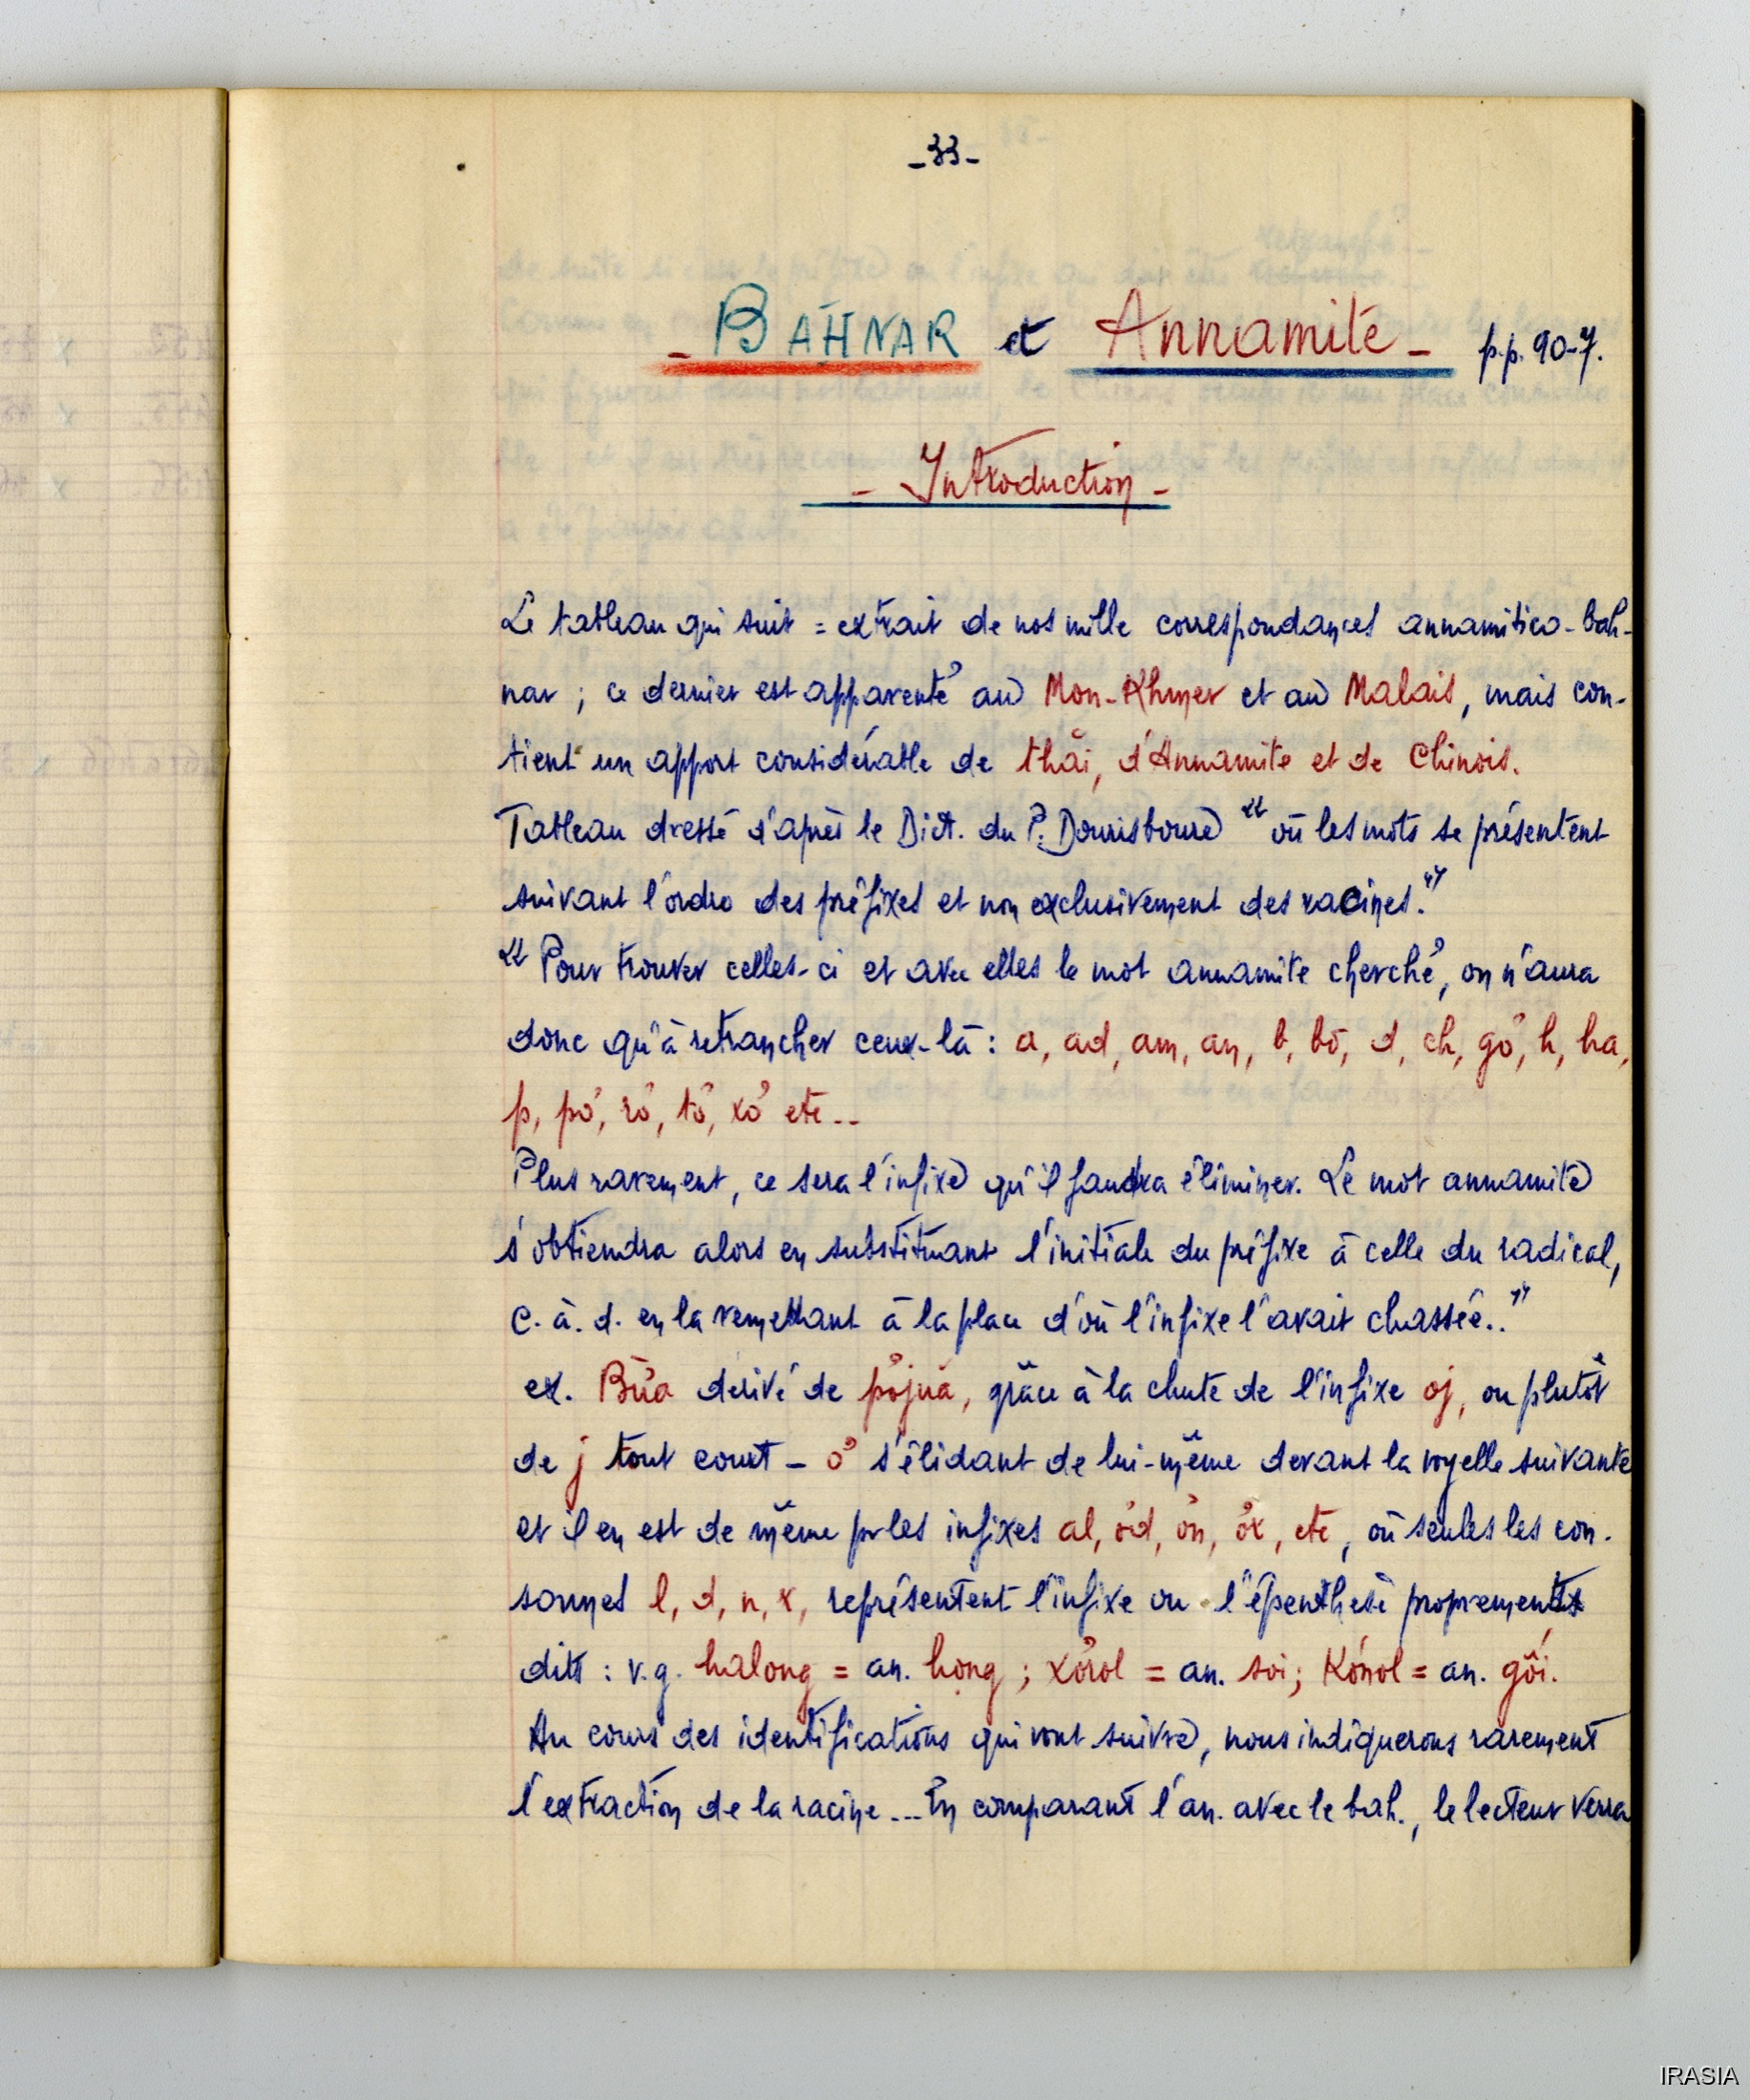 -33-
- BAHNAR et Annamite - p.p. 90-7.
- Introduction -
Le tableau qui suit = extrait de nos mille correspondances annamitico-bah-
nar ; ce dernier est apparenté au Mon-Khmer et au Malais, mais con-
tient un apport considérable de thái, d'Annamite et de Chinois.
Tableau dressé d'après le Dict. du P. Dourisboure " où les mots se présentent
suivant l'ordre des préfixes et non exclusivement des racines. "
" Pour trouver celles-ci et avec elles le mot annamite cherché, on n'aura
donc qu'à retrancher ceux-là : a, ad, am, an, b, bơ, d, ch, gơ, h, ha,
p, pơ, rơ, tơ, xơ etc --
Plus rarement, ce sera l'infixe qu'il faudra éliminer. Le mot annamite
s'obtiendra alors en substituant l'initiale du préfixe à celle du radical,
c. à. d. en la remettant à la place d'où l'infixe l'avait chassée.. "
ex. Bùa derivé de pơjuă, grâce à la chute de l'infixe oj, ou plutôt
de j tout court - ơ s'élidant de lui-même devant la voyelle suivante
et il en est de même pr les infixes al, ơd, ơn, ơx, etc, où seules les con-
sonnes l, d, n, x, représentent l'infixe ou l'épenthèse proprements
dits : v.g. halong = an. họng ; xơrol = an. soi ; Kơnol = an. gối.
Au cours des identifications qui vont suivre, nous indiquerons rarement
l'extraction de la racine --- En comparant l'an. avec le bah., le lecteur verra
IRASIA